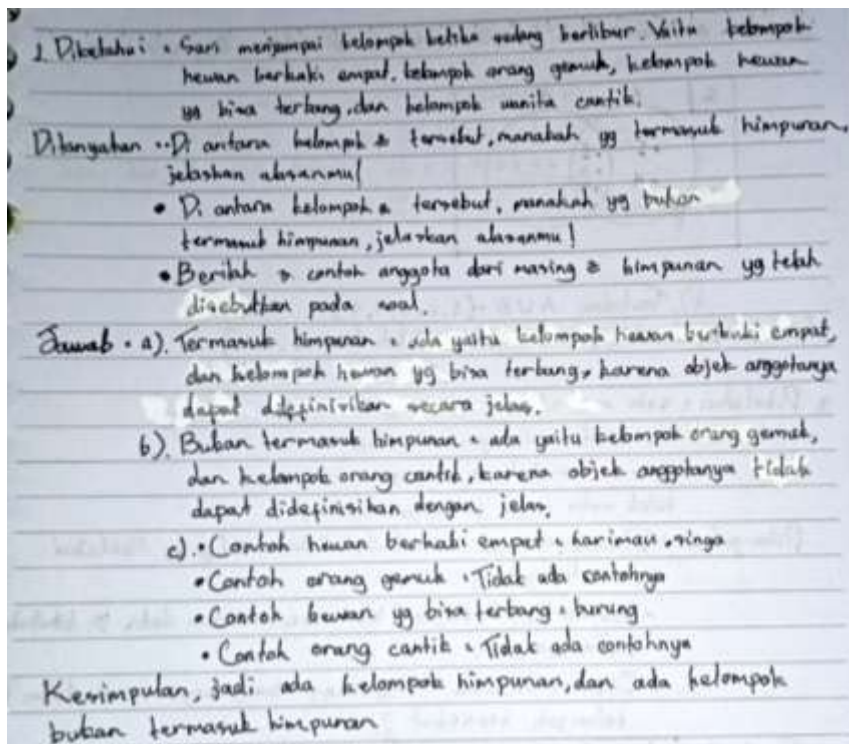 1. Diketahui : Sari menjumpai kelompok ketika sedang berlibur. Yaitu kelompok
hewan berkaki empat, kelompok orang gemuk, kelompok hewan
yg bisa terbang, dan kelompok wanita cantik.
Ditanyakan : • Di antara kelompok 2 tersebut, manakah yg termasuk himpunan,
jelaskan alasanmu!
• Di antara kelompok 2 tersebut, manakah yg bukan
termasuk himpunan, jelaskan alasanmu!
• Berilah contoh anggota dari masing 2 himpunan yg telah
disebutkan pada soal.
Jawab : a). Termasuk himpunan : ada yaitu kelompok hewan berkaki empat,
dan kelompok hewan yg bisa terbang, karena objek anggotanya
dapat didefinisikan secara jelas.
b). Bukan termasuk himpunan : ada yaitu kelompok orang gemuk,
dan kelompok orang cantik, karena objek anggotanya tidak
dapat didefinisikan dengan jelas.
c). • Contoh hewan berkaki empat : harimau, singa
• Contoh orang gemuk : Tidak ada contohnya
• Contoh hewan yg bisa terbang : burung
• Contoh orang cantik : Tidak ada contohnya
Kesimpulan, jadi ada kelompok himpunan, dan ada kelompok
bukan termasuk himpunan